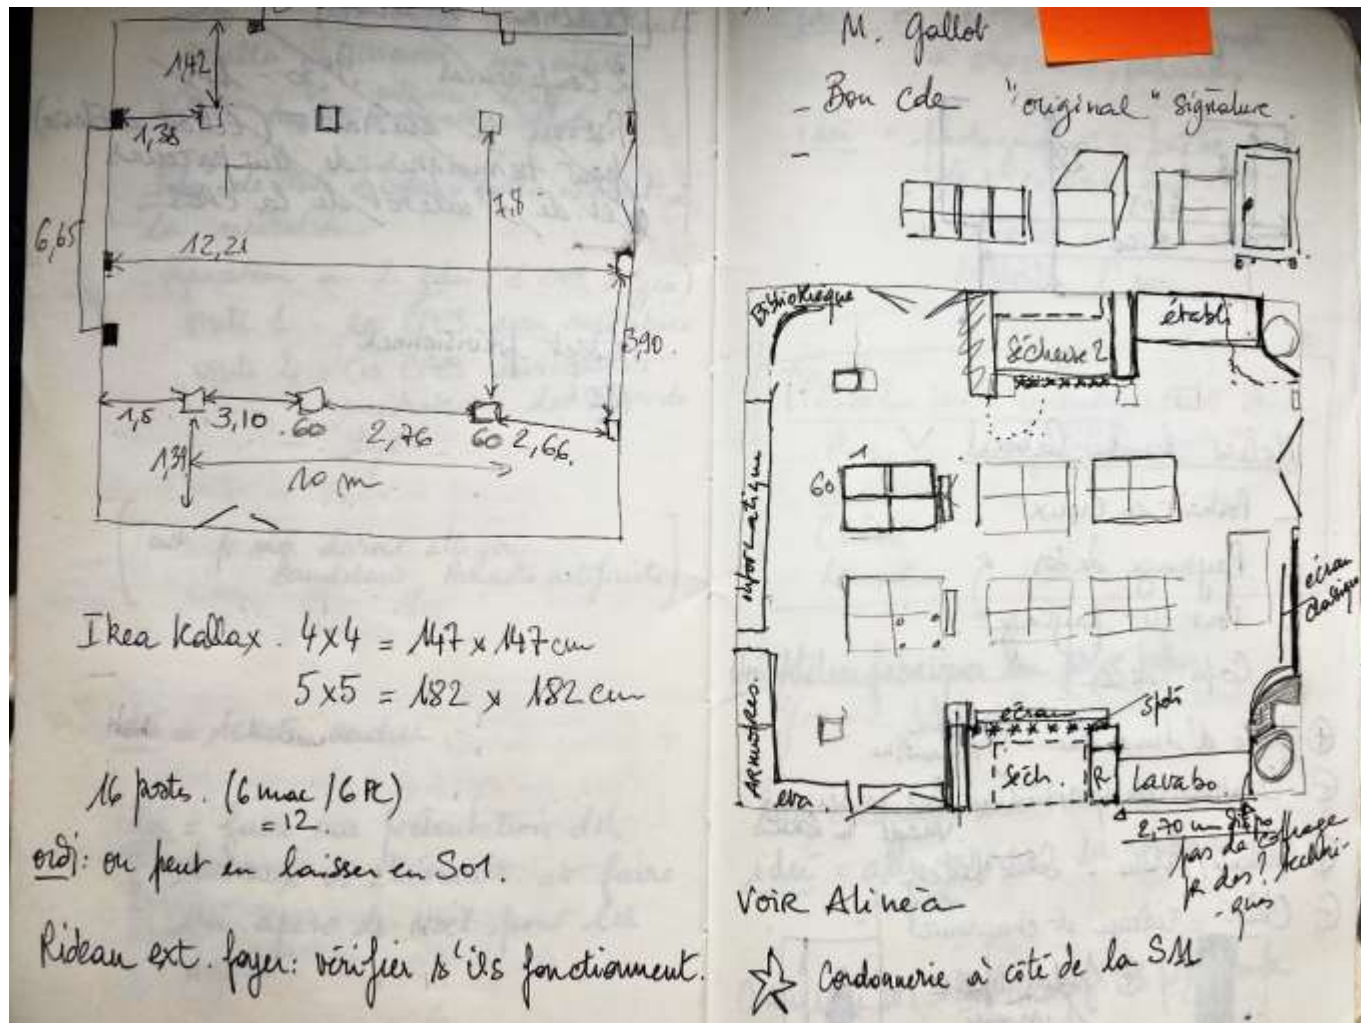 1,42
1,38
6,65
12,21
7,8
3,90.
1,5
3,10
.60
2,76
60
2,66.
1,39
10 m
Ikea Kallax. 4x4 = 147 x 147 cm
5x5 = 182 x 182 cm
16 postes. (6 mac / 6 PC)
= 12.
ordi: on peut en laisser en S01.
Rideau ext. foyer: vérifier s'ils fonctionnent.
M. Gallot
- Bon Cde "original" signature.
-
Bibliothèque
Sécheuse 2
établi
informatique
1
60
écran
ARMOIRES.
eva
écran
spots
Séch.
R
Lavabo
2,70 m
pas de coffrage
techni-
ques
VOIR Alinéa
☆ Cordonnerie à côté de la SM